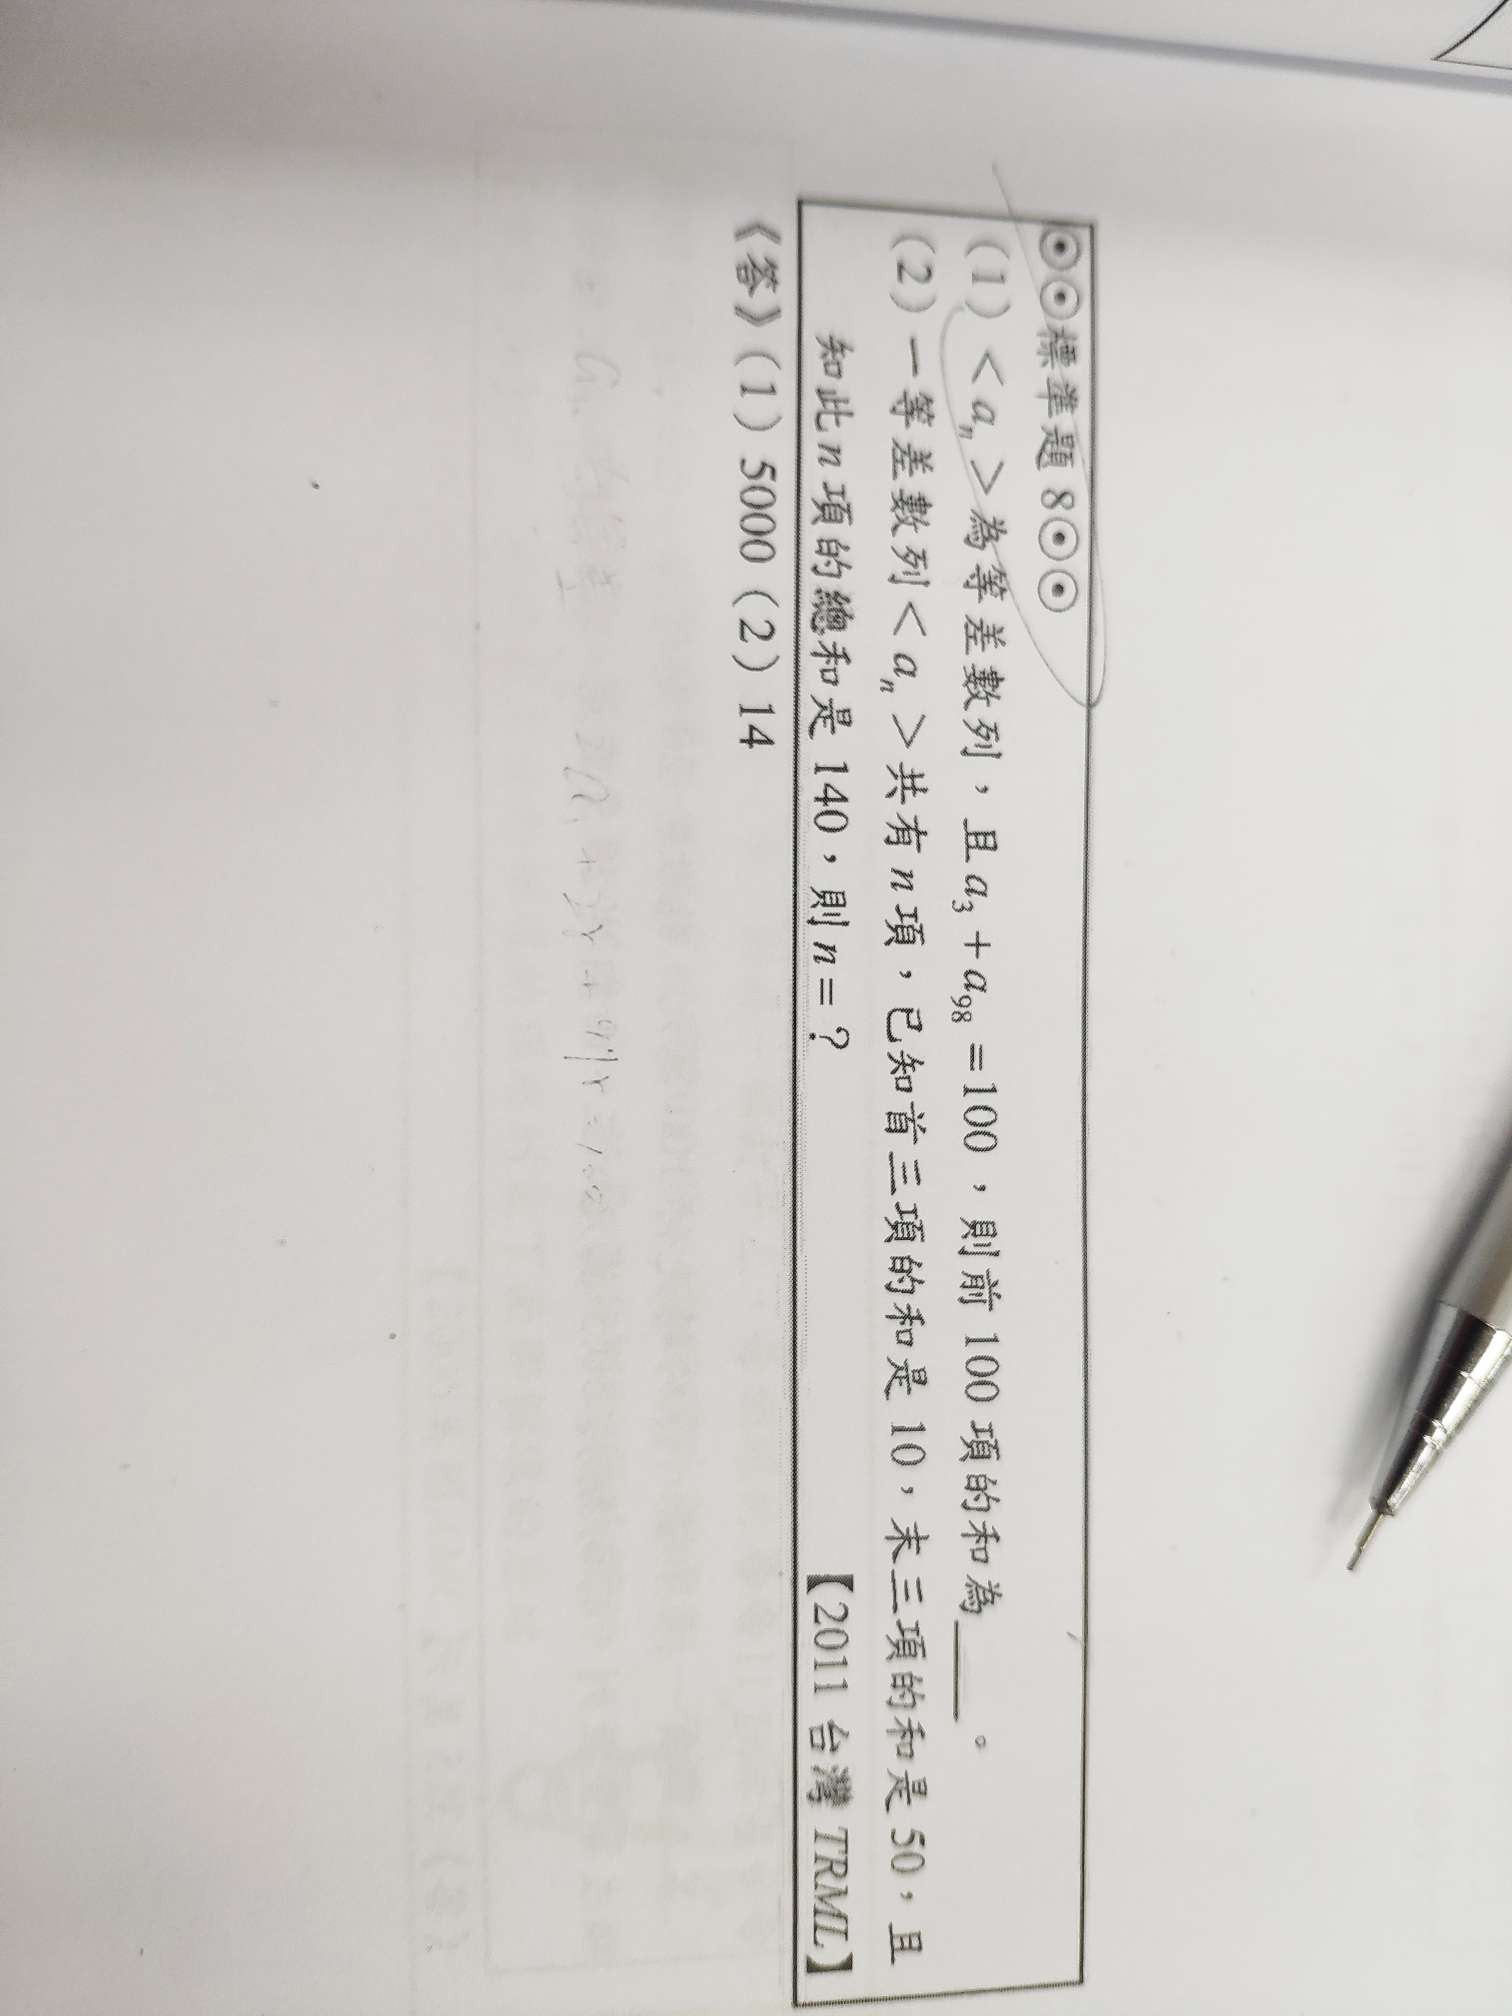 ⊙⊙標準題 8⊙⊙
(1) < aₙ > 為等差數列，且 a₃ + a₉₈ =100，則前 100 項的和為____。
(2) 一等差數列 < aₙ > 共有 n 項，已知首三項的和是 10，末三項的和是 50，且
知此 n 項的總和是 140，則 n = ？
【2011 台灣 TRML】
《答》(1) 5000 (2) 14